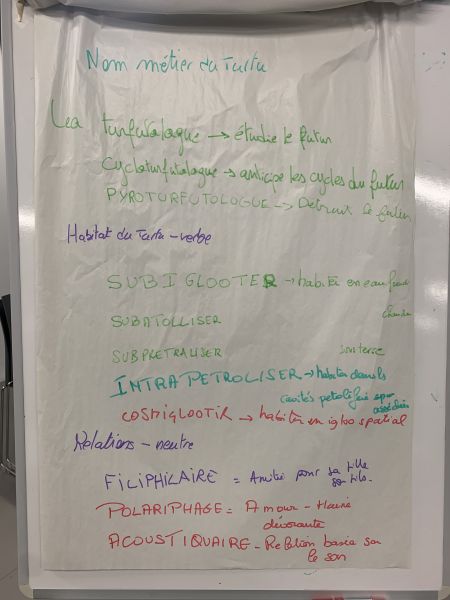 Nom métier du Turfu
Léa turfutologue → étudie le futur
cycloturfutologue → anticipe les cycles du futur
PYROTURFUTOLOGUE → Détruit le futur
Habitat du Turfu - verbe
SUBIGLOOTER → habiter en eau froide
SUBATOLLISER chaude
SUBPLETRALISER sous terre
INTRAPETROLISER → habiter dans les
cavités pétrolifères
COSMIGLOOTIR → habiter en igloo spatial
Relations - neutre
FILIPHILAIRE = Amitié pour sa fille
son fils.
POLARIPHAGE = Amour - Haine
dévorante
ACOUSTIQUAIRE - Relation basée sur
le son